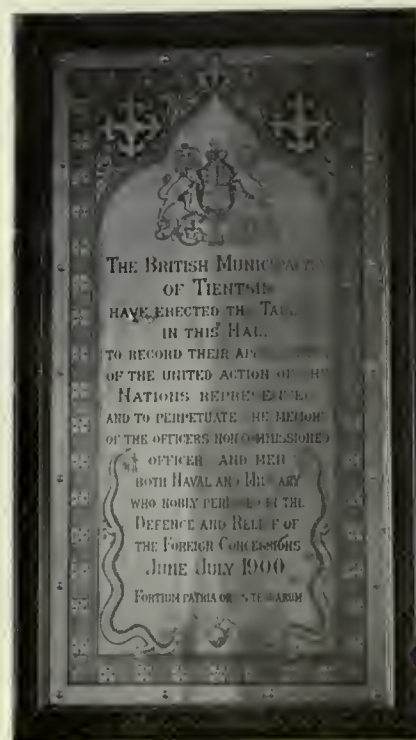 THE BRITISH MUNICIPALITY
OF TIENTSIN
HAVE ERECTED THIS TABLET
IN THIS HALL
TO RECORD THEIR APPRECIATION
OF THE UNITED ACTION OF THE
NATIONS REPRESENTED
AND TO PERPETUATE THE MEMORY
OF THE OFFICERS NON COMMISSIONED
OFFICERS AND MEN
BOTH NAVAL AND MILITARY
WHO NOBLY PERISHED IN THE
DEFENCE AND RELIEF OF
THE FOREIGN CONCESSIONS
JUNE JULY 1900
FORTIUM PATRIA ORBIS TERRARUM